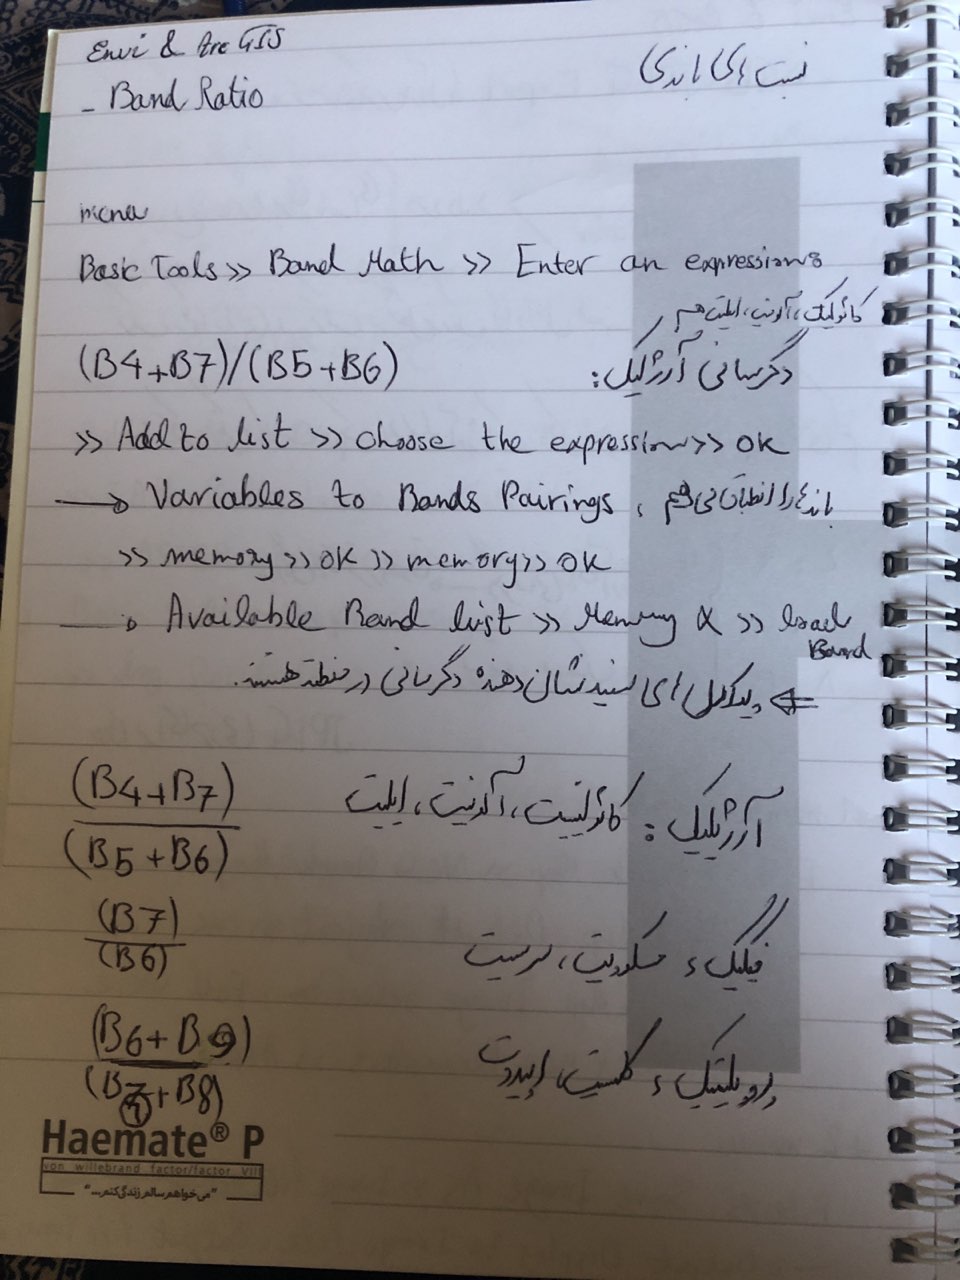 Envi & Arc GIS
نسبت های باندی
- Band Ratio
menu
Basic Tools >> Band Math >> Enter an expressions
کائولینیت، آلونیت، ایلیت
(B4+B7)/(B5+B6) دگرسانی آرژیلیک:
>> Add to list >> choose the expression >> OK
→ Variables to Bands Pairings، باندها را انطباق می‌دهیم
>> memory >> OK >> memory >> OK
→ Available Band List >> Memory >> Load Band
⇐ پیکسل های سفید نشان دهنده دگرسانی در منطقه هستند.
(B4+B7) / (B5+B6) آرژیلیک: کائولینیت، آلونیت، ایلیت
(B7) / (B6) فیلیک: مسکوویت، سرسیت
(B6+B9) / (B7+B8) پروپلیتیک: کلسیت، اپیدوت
Haemate® P
von willebrand factor/factor VIII
"می‌خواهم سالم زندگی کنم..."